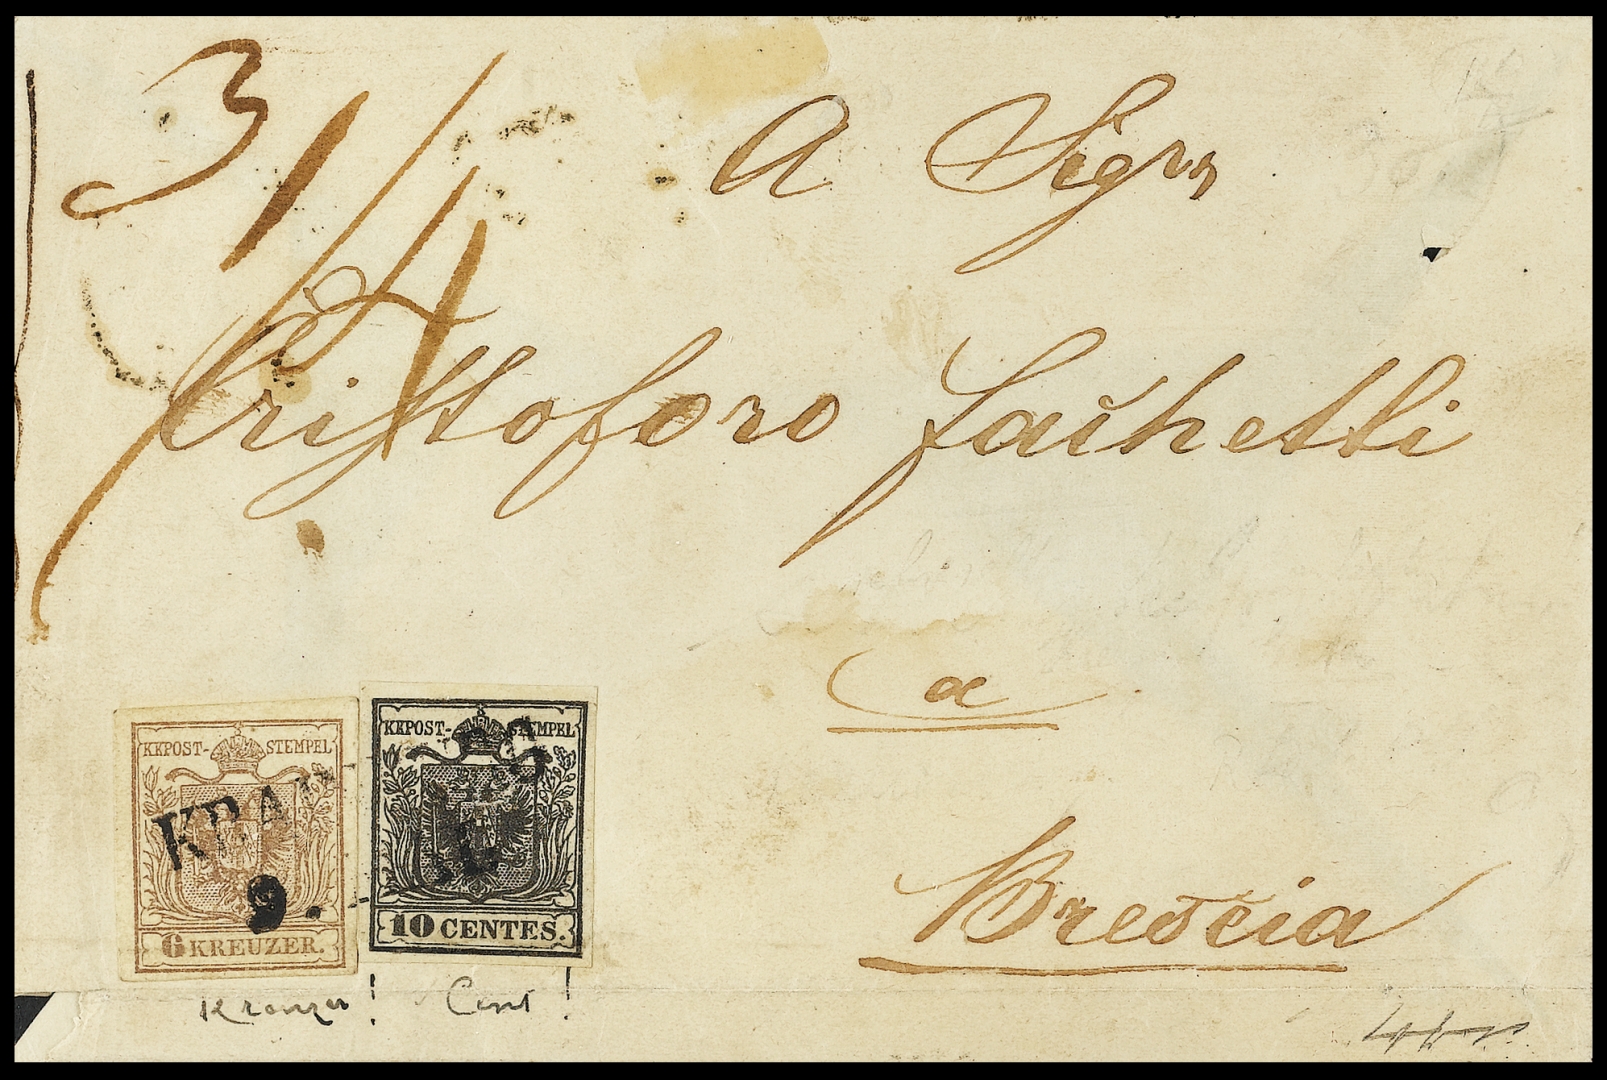 3
A Sigr
Cristoforo Fachetti
a
Brescia
KKPOST-STEMPEL
6 KREUZER.
KKPOST-STEMPEL
10 CENTES.
9.
Kreuzer! Cent!